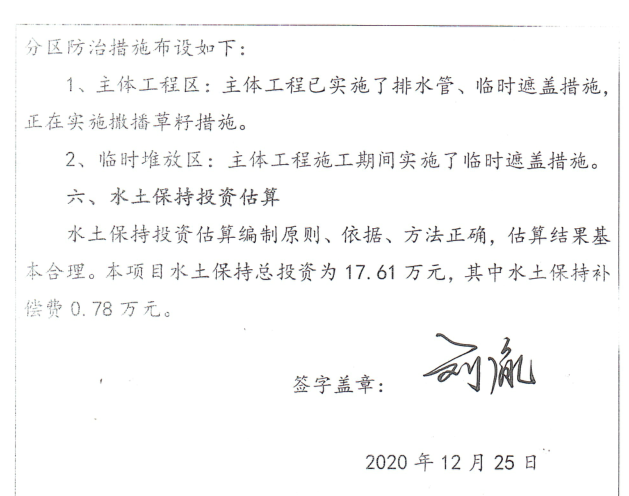 分区防治措施布设如下：
1、主体工程区：主体工程已实施了排水管、临时遮盖措施，
正在实施撒播草籽措施。
2、临时堆放区：主体工程施工期间实施了临时遮盖措施。
六、水土保持投资估算
水土保持投资估算编制原则、依据、方法正确，估算结果基
本合理。本项目水土保持总投资为 17.61 万元，其中水土保持补
偿费 0.78 万元。
签字盖章：
2020 年 12 月 25 日